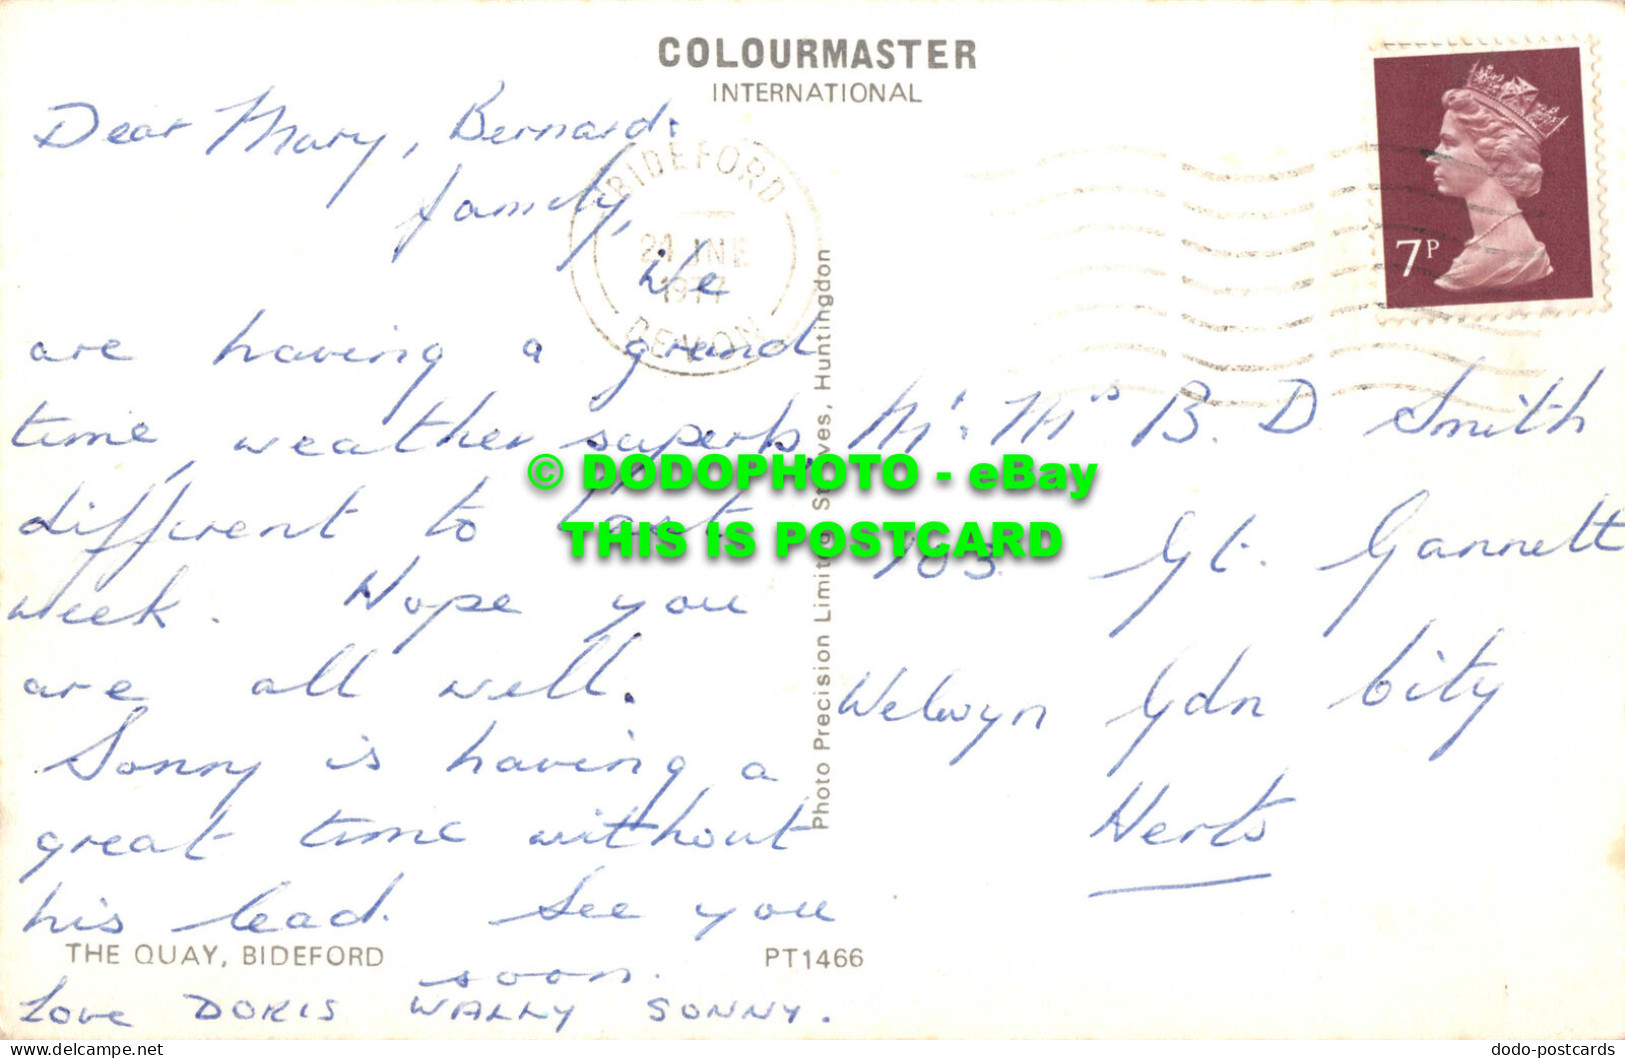 COLOURMASTER
INTERNATIONAL
Dear Mary, Bernard &
family,
We
are having a grand
time, weather superb,
different to last
week. Hope you
are all well.
Sonny is having a
great time without
his lead. See you
soon.
Love DORIS WALLY SONNY.
BIDEFORD
24 JNE
1977
DEVON
7P
Mr & Mrs B. D. Smith
703 Gt. Gannett
Welwyn Gdn City
Herts
Photo Precision Limited, St. Ives, Huntingdon
THE QUAY, BIDEFORD
PT1466
© DODOPHOTO - eBay
THIS IS POSTCARD
https://www.delcampe.net
dodo-postcards